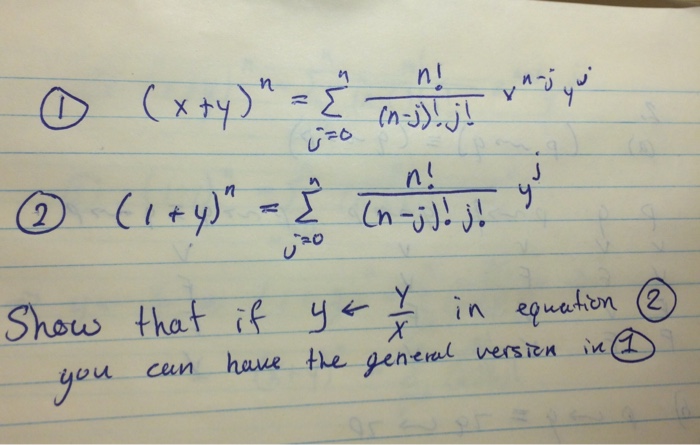 ① (x+y)^n = Σ_{j=0}^{n} n!/((n-j)! j!) x^{n-j} y^j
② (1+y)^n = Σ_{j=0}^{n} n!/((n-j)! j!) y^j
Show that if y ← Y/X in equation ②
you can have the general version in ①